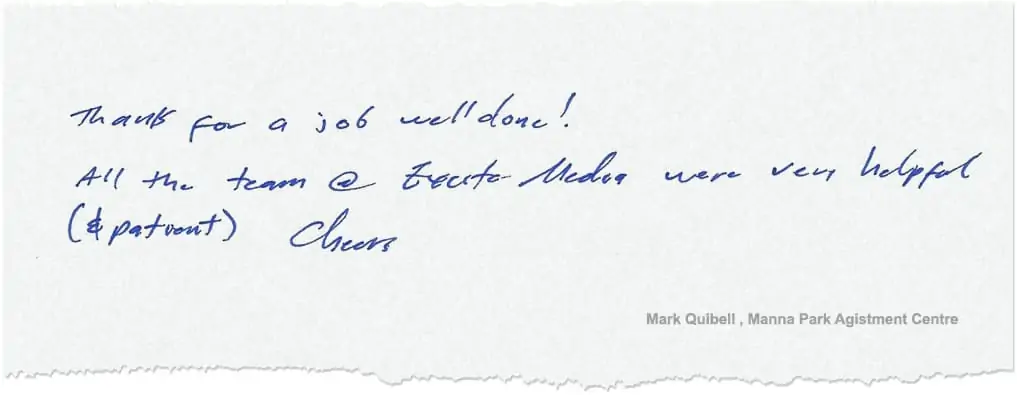 Thank for a job well done!
All the team @ Media were very helpful
(& patient) Cheers
Mark Quibell , Manna Park Agistment Centre